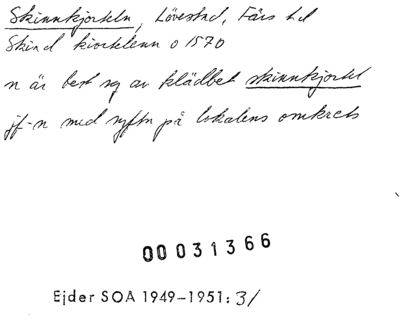 Skinnkjorteln, Lövestad, Färs hd
Skind kiortelenn o 1570
n är best sg av klädbet skinnkjortel
jf-n med syftn på lokalens omkrets
00031366
Ejder SOA 1949-1951: 3/